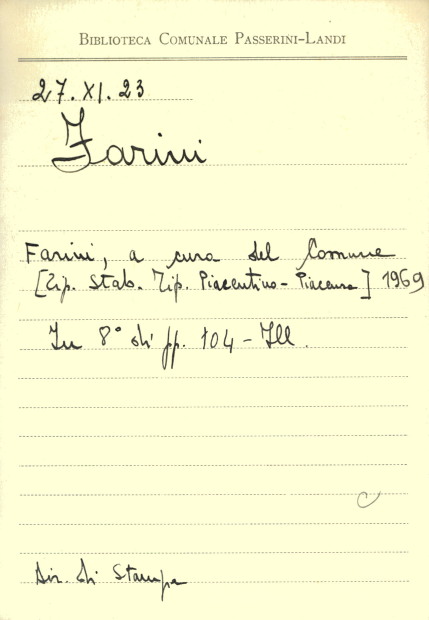 BIBLIOTECA COMUNALE PASSERINI-LANDI
27. XI. 23
Farini
Farini, a cura del Comune
[Tip. Stab. Tip. Piacentino - Piacenza] 1969
In 8° di pp. 104 - Ill.
Dir. di Stampa